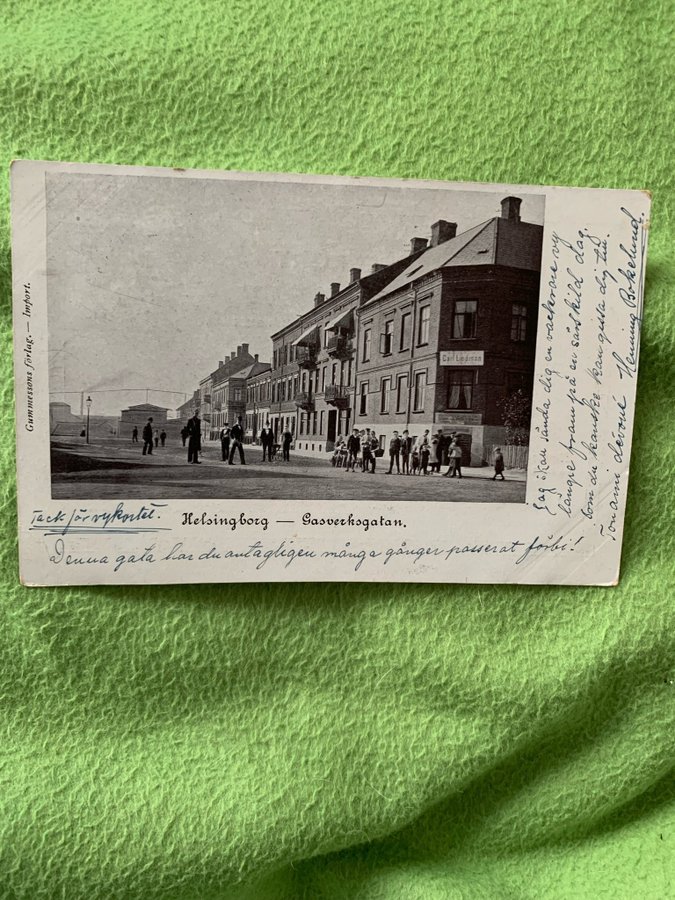 Gummessons förlag. — import.
Carl Lindman
Tack för vykortet.
Helsingborg — Gasverksgatan.
Denna gata har du antagligen många gånger passerat förbi!
Jag skall sända dig en vackrare vy
längre fram på en särskild dag.
som du kanske kan gissa dig till.
Ton ami dévoué Henning Bokelund.